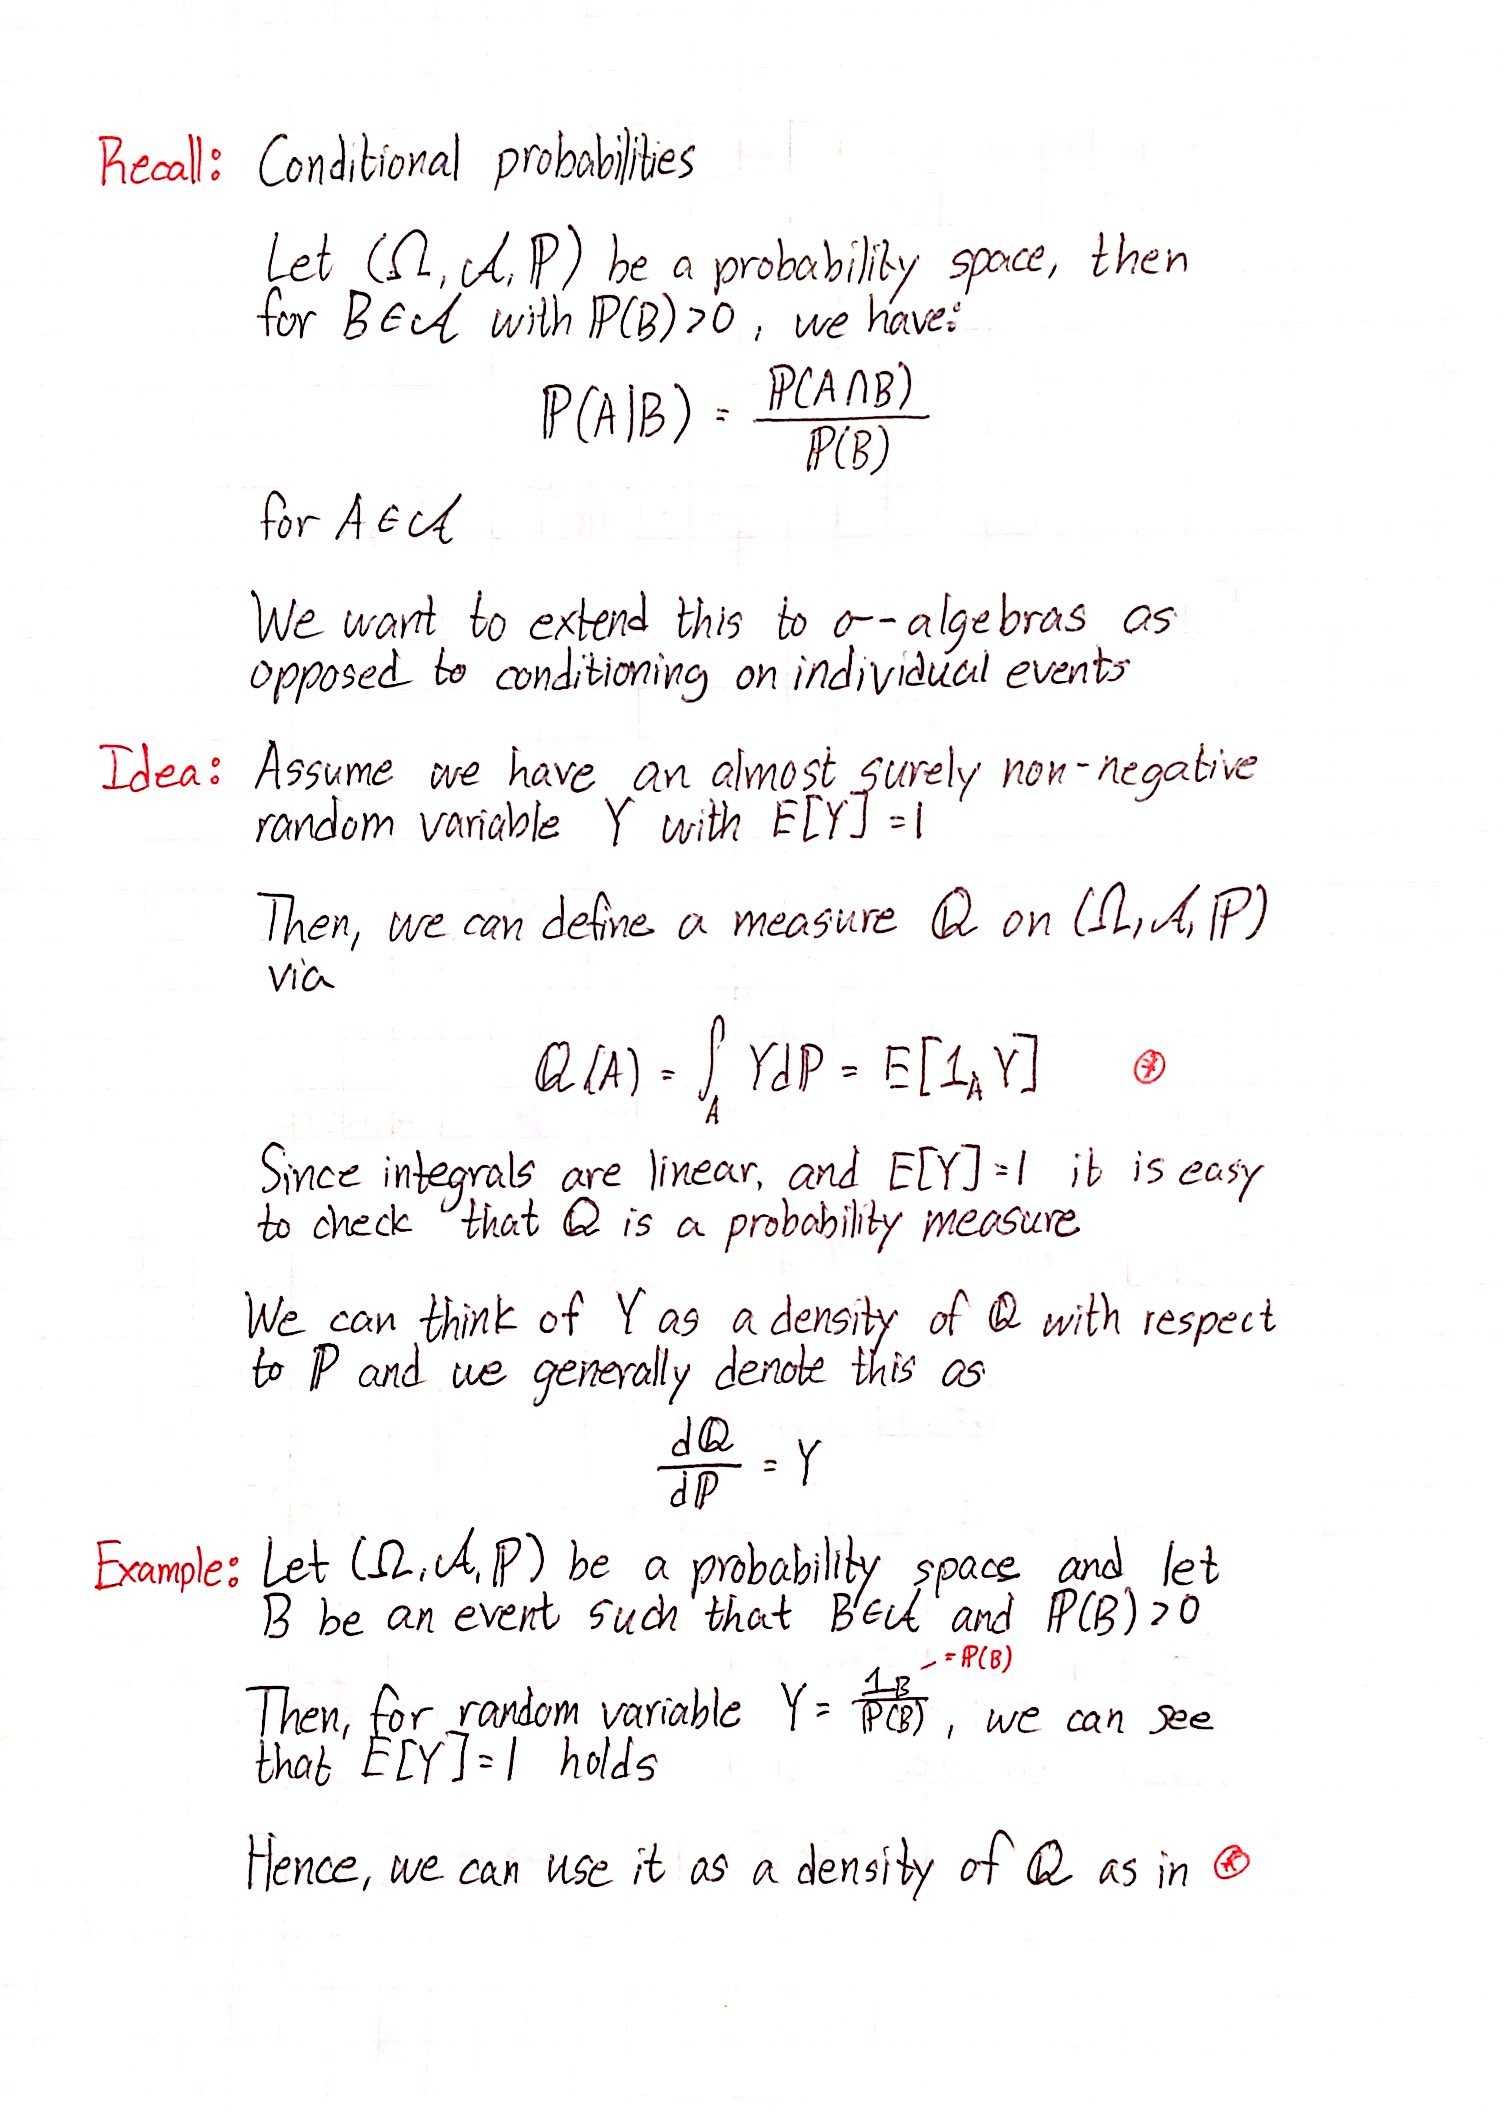 Recall: Conditional probabilities
Let (Ω, 𝒜, ℙ) be a probability space, then
for B ∈ 𝒜 with ℙ(B) > 0, we have:
ℙ(A|B) = ℙ(A∩B) / ℙ(B)
for A ∈ 𝒜
We want to extend this to σ-algebras as
opposed to conditioning on individual events
Idea: Assume we have an almost surely non-negative
random variable Y with E[Y] = 1
Then, we can define a measure ℚ on (Ω, 𝒜, ℙ)
via
ℚ(A) = ∫_A Y dℙ = E[1_A Y] ⊛
Since integrals are linear, and E[Y] = 1 it is easy
to check that ℚ is a probability measure
We can think of Y as a density of ℚ with respect
to ℙ and we generally denote this as
dℚ/dℙ = Y
Example: Let (Ω, 𝒜, ℙ) be a probability space and let
B be an event such that B ∈ 𝒜 and ℙ(B) > 0
= ℙ(B)
Then, for random variable Y = 1_B / ℙ(B), we can see
that E[Y] = 1 holds
Hence, we can use it as a density of ℚ as in ⊛